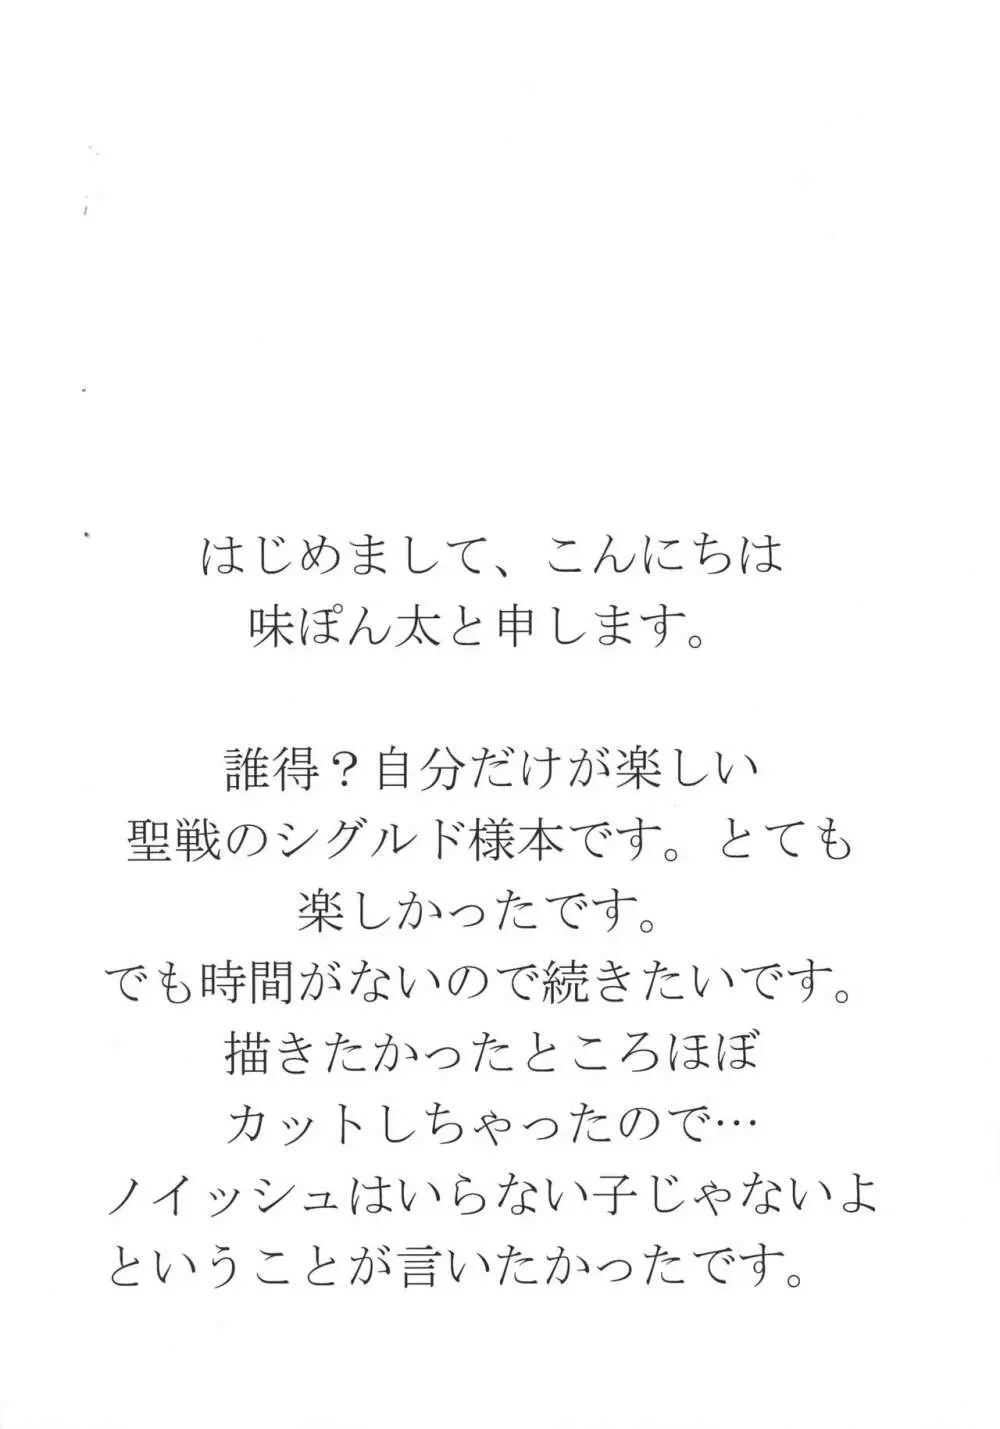 はじめまして、こんにちは
味ぽん太と申します。
誰得？自分だけが楽しい
聖戦のシグルド様本です。とても
楽しかったです。
でも時間がないので続きたいです。
描きたかったところほぼ
カットしちゃったので…
ノイッシュはいらない子じゃないよ
ということが言いたかったです。